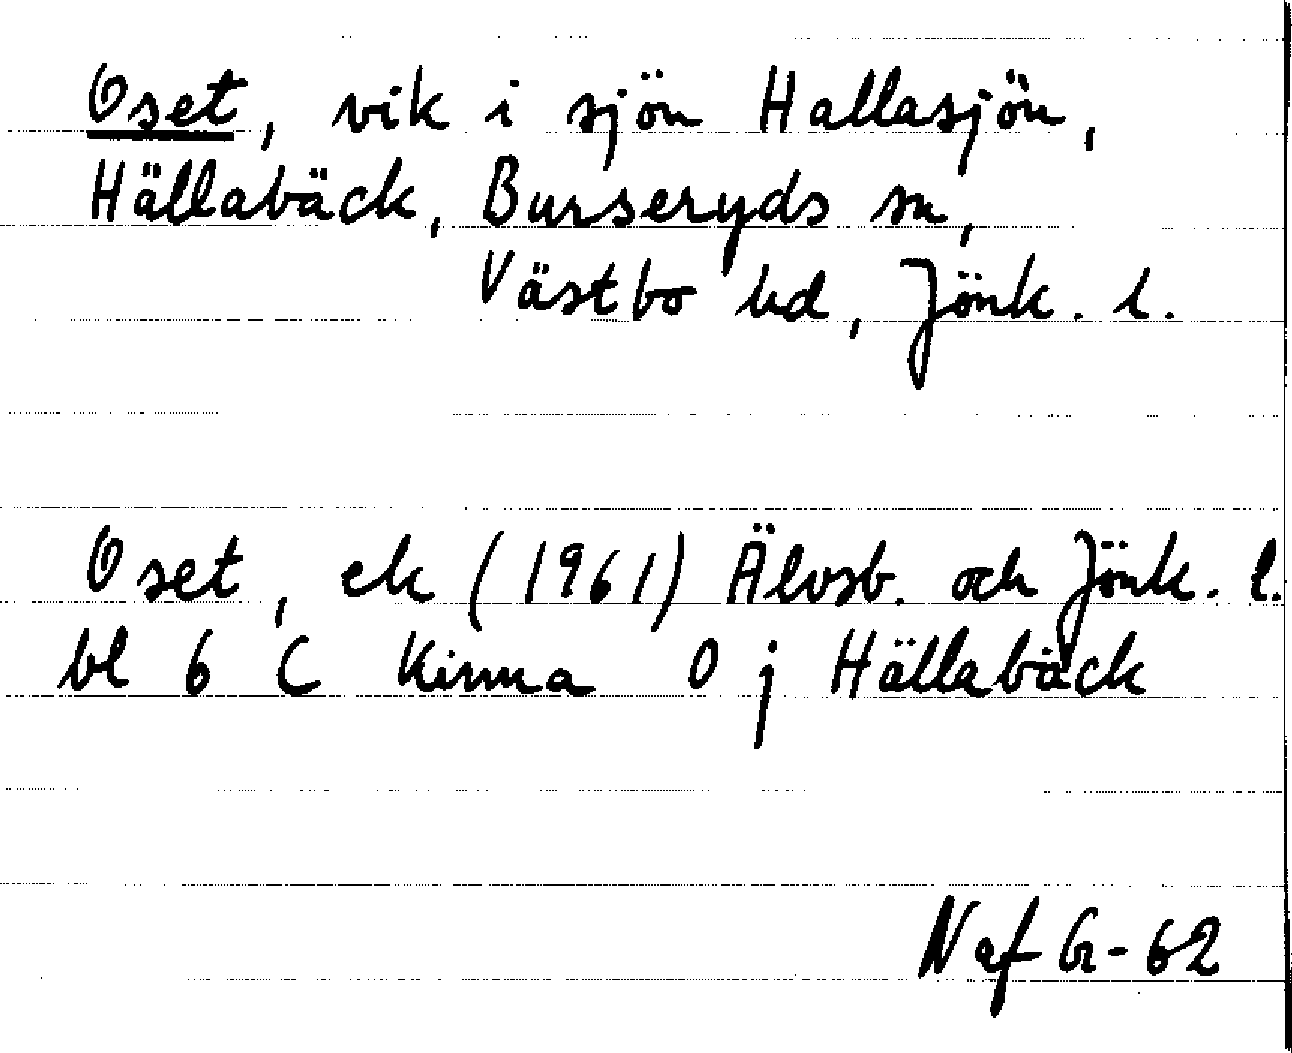 Oset, vik i sjön Hallasjön,
Hällabäck, Burseryds sn,
Västbo hd, Jönk. l.
Oset, ek (1961) Älvsb. och Jönk. l.
bl 6 C Kinna O j Hällabäck
Naf G-62